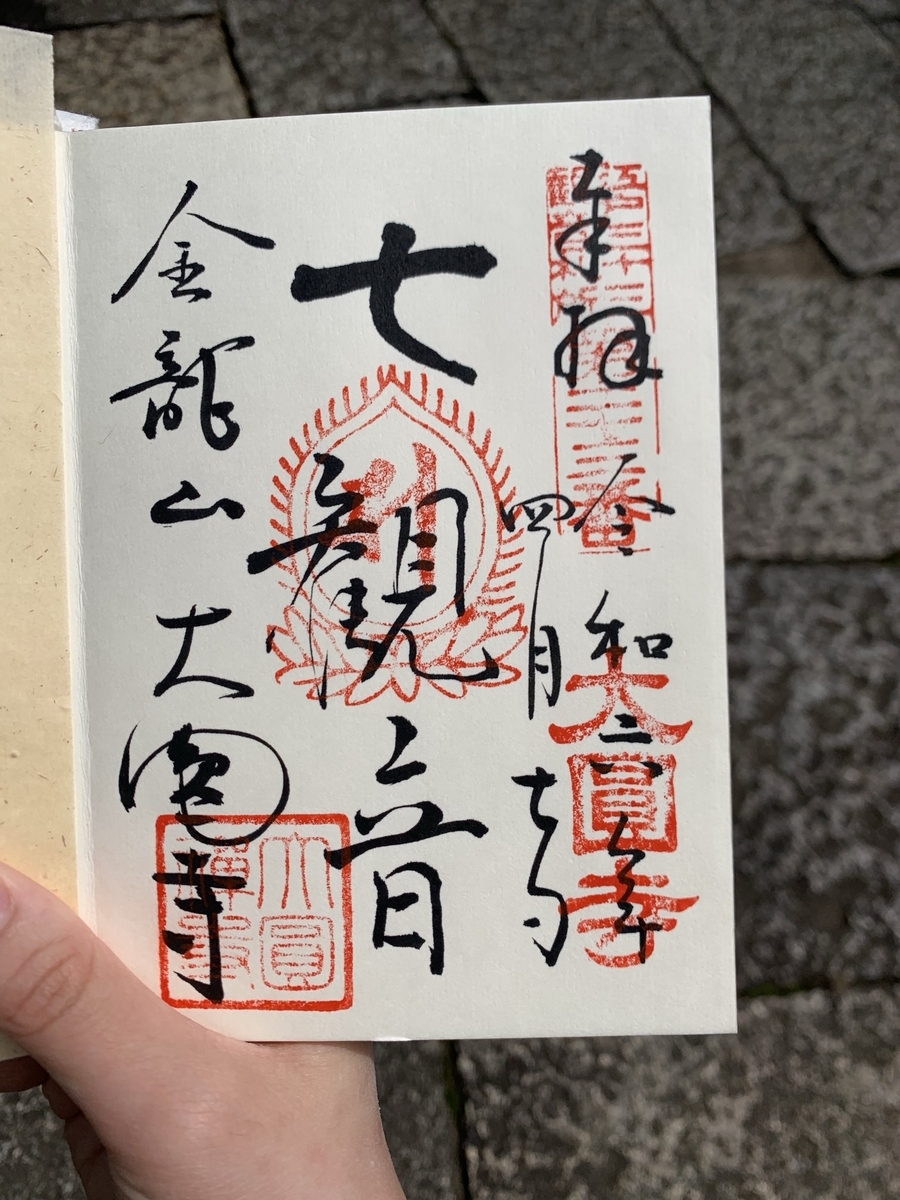 奉拝
令和六年
四月
七観音
金龍山 大圓寺
二十三番
大圓寺
大圓
禅寺